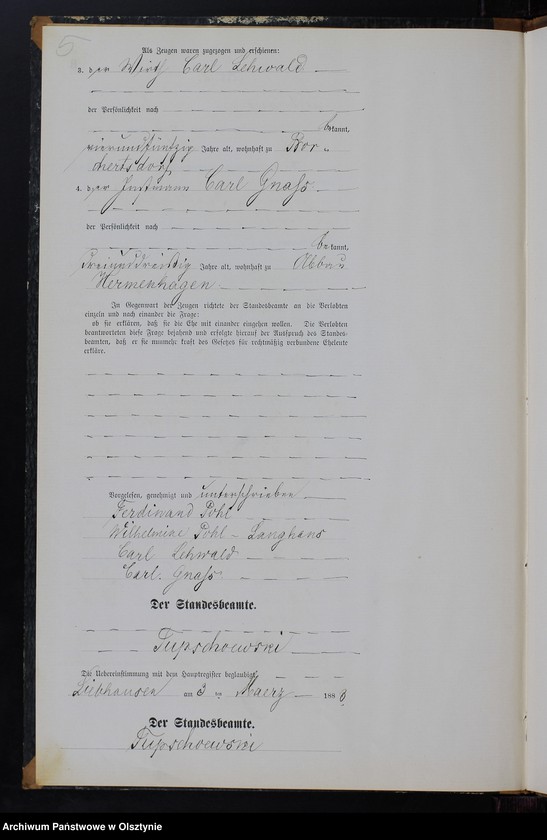 5
Als Zeugen waren zugezogen und erschienen:
3. der Wirth Carl Lehwald
der Persönlichkeit nach
bekannt,
vierundfünfzig Jahre alt, wohnhaft zu Bor-
chertsdorf
4. der Instmann Carl Gnass
der Persönlichkeit nach
bekannt,
dreiunddreißig Jahre alt, wohnhaft zu Abbau
Hermenhagen
In Gegenwart der Zeugen richtete der Standesbeamte an die Verlobten
einzeln und nach einander die Frage:
ob sie erklären, daß sie die Ehe mit einander eingehen wollen. Die Verlobten
beantworteten diese Frage bejahend und erfolgte hierauf der Ausspruch des Standes-
beamten, daß er sie nunmehr kraft des Gesetzes für rechtmäßig verbundene Eheleute
erkläre.
Vorgelesen, genehmigt und unterschrieben
Ferdinand Pohl
Wilhelmine Pohl - Langhans
Carl Lehwald
Carl. Gnass
Der Standesbeamte.
Tupschoewski
Die Uebereinstimmung mit dem Hauptregister beglaubigt
Liebhausen am 3 ten Maerz 1888
Der Standesbeamte.
Tupschoewski
Archiwum Państwowe w Olsztynie